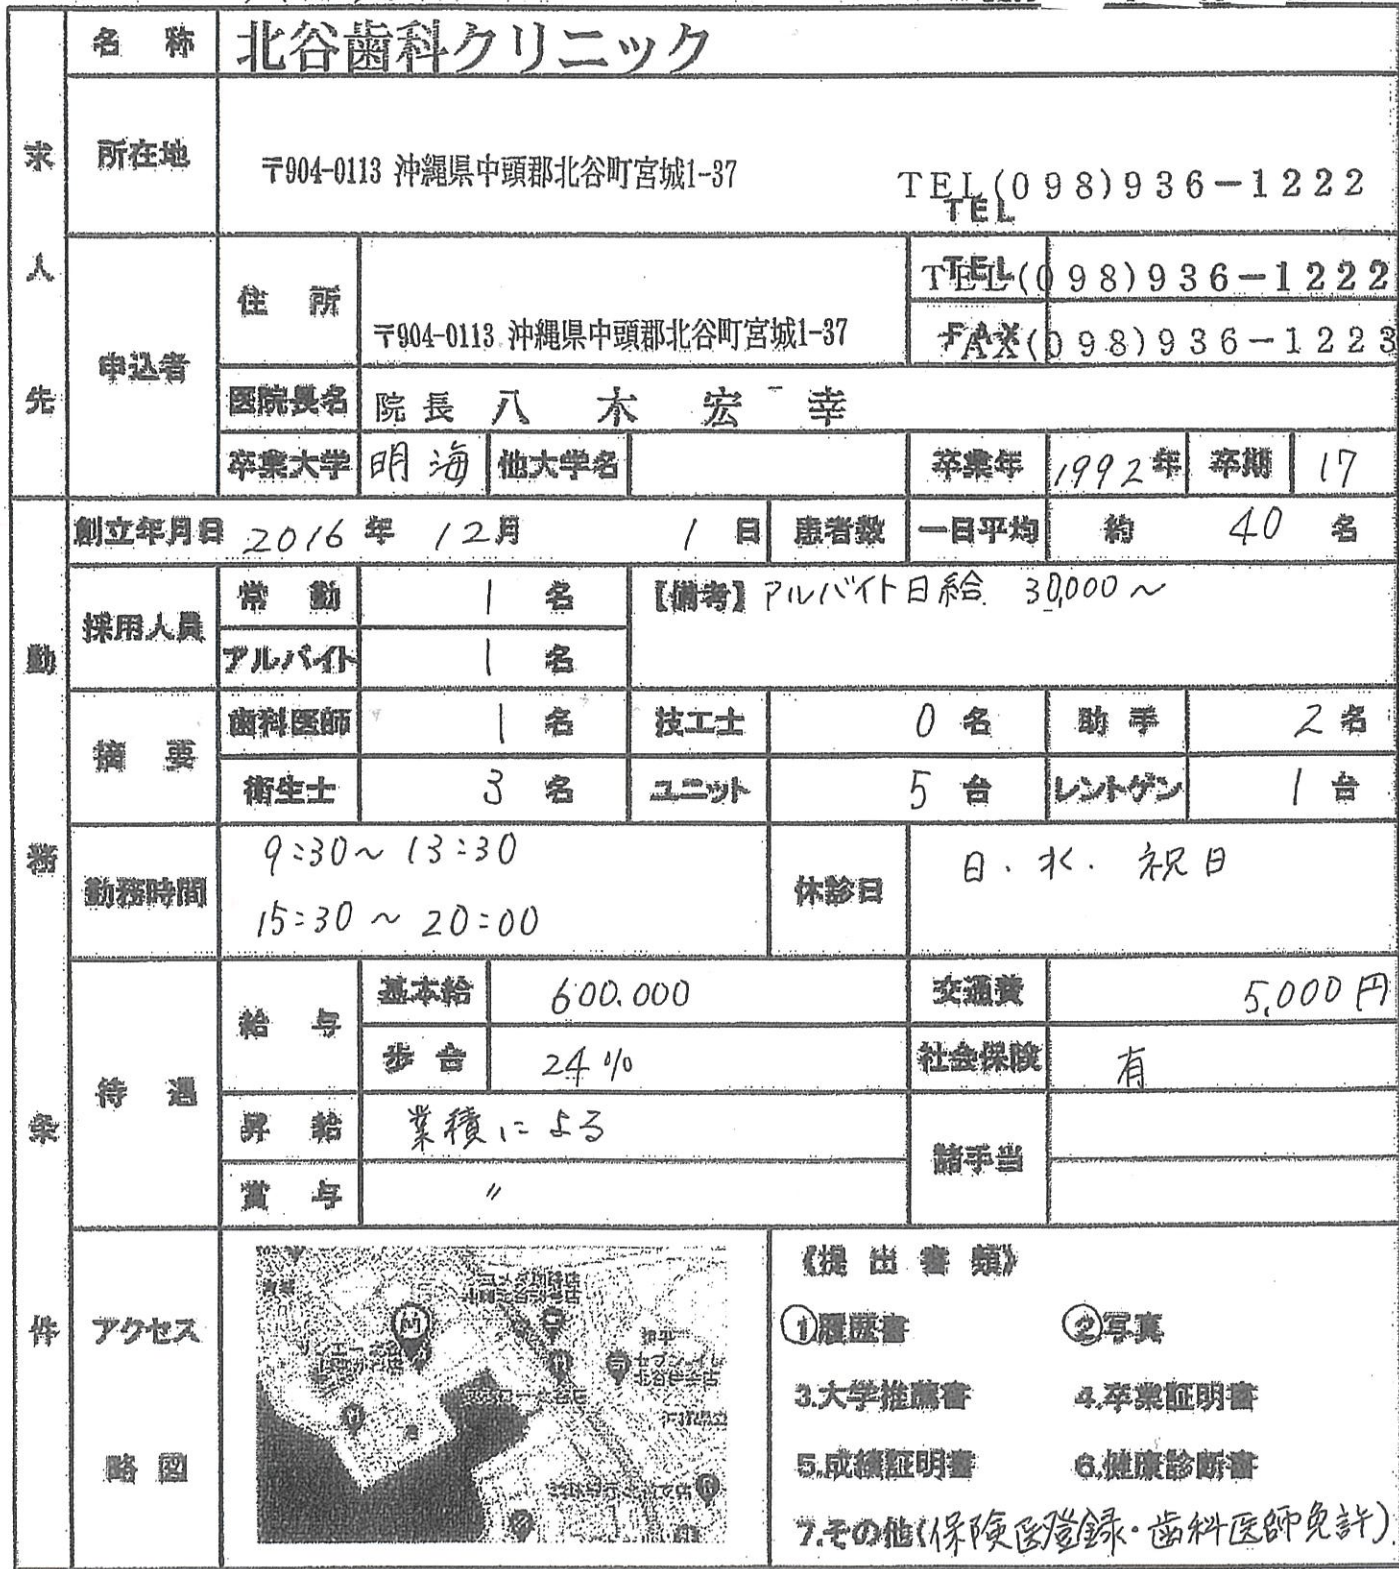 求人先
名 称 北谷歯科クリニック
所在地 〒904-0113 沖縄県中頭郡北谷町宮城1-37 TEL(098)936-1222
TEL
申込者
住 所 〒904-0113 沖縄県中頭郡北谷町宮城1-37
TEL TEL(098)936-1222
FAX FAX(098)936-1223
医院長名 院長 八木 宏幸
卒業大学 明海 他大学名 卒業年 1992年 卒期 17
勤務条件
創立年月日 2016年 12月 1日 患者数 一日平均 約 40 名
採用人員 常 勤 1 名 【備考】アルバイト日給 30,000~
アルバイト 1 名
摘 要 歯科医師 1 名 技工士 0 名 助 手 2 名
衛生士 3 名 ユニット 5 台 レントゲン 1 台
勤務時間 9:30~13:30
15:30~20:00
休診日 日・水・祝日
待 遇 給 与 基本給 600.000 交通費 5,000円
歩 合 24% 社会保険 有
昇 給 業績による 諸手当
賞 与 〃
アクセス
略 図
《提 出 書 類》
①履歴書 ②写真
3.大学推薦書 4.卒業証明書
5.成績証明書 6.健康診断書
7.その他(保険医登録・歯科医師免許)